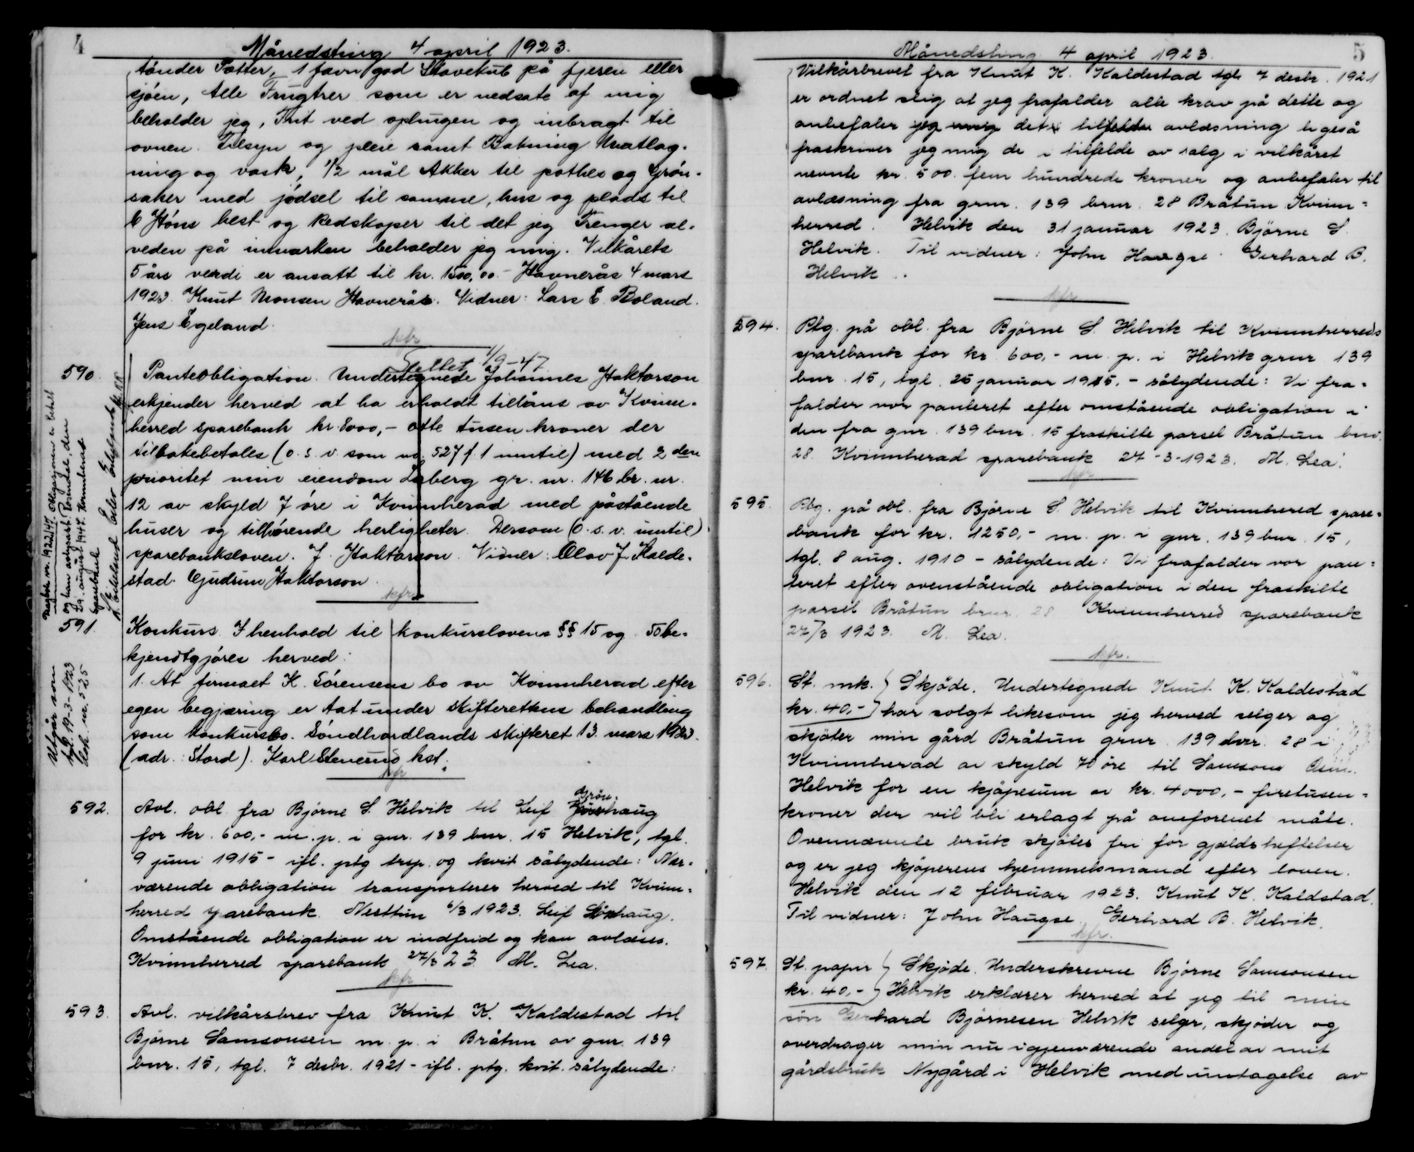 4
Månedsting 4 april 1923.
tönder Potter, 1 favn god Stavekub på fjeren eller
sjöen, Alle Frugtrer som er nedsate af mig
beholder jeg, Frit ved ophugen og inbragt til
ovnen. Tilsyn og pleie samt Batning Matlag-
ning og vask, 1/2 mål Akker til pothes og Grön-
saker med jödsel til samme, hus og plads til
6 Höns hest og Redskaper til det jeg Trenger al-
veden på inmarken beholder jeg mig. Vilkårets
5 års verdi er ansatt til kr. 1500,00.- Havnerås 4 mars
1923 Knut Monsen Havnerås. Vidner: Lars E. Boland.
Jens Egeland.
Slettet 1/9-47
590. Panteobligation. Undertegnede Johannes Haktorson
erkjender herved at ha erholdt tillåns av Kvinn-
herred Sparebank kr 8000,- otte tusen kroner der
tilbakebetales (o.s.v. som no 527 f 1 inntil) med 2den
prioritet min eiendom Laberg gr. nr. 146 br. nr.
12 av skyld 7 öre i Kvinnherad med påstående
huser og tilhörende herligheter. Dersom (o.s.v. inntil)
sparebanksloven. J. Haktorson. Vidner: Olav J. Kalde-
stad Gudrun Haktorson.
591. Konkurs. I henhold til konkurslovens §§ 15 og 50 be-
kjendtgjöres herved:
1. At firmaet K. Sörensens bo av Kvinnherad efter
egen begjæring er tat under skifterettens behandling
som konkursbo. Söndhordlands skifteret 13 mars 1923.
(adr. Stord). Karl hst.
592. Avl. obl. fra Björne S. Helvik til Leif Grönhaug
for kr. 600,- m. p. i gnr. 139 bnr. 15 Helvik, tgl.
9 juni 1915 - ifl. ptg trsp. og kvit sålydende: Nær-
værende obligation transporteres herved til Kvinn-
herred sparebank. Nesttun 6/3 1923. Leif Grönhaug.
Omstående obligation er indfrid og kan avlæses.
Kvinnherred sparebank 27/3 23 M. Lea.
593. Avl. vilkårsbrev fra Knut K. Kaldestad til
Björne Samsonsen m. p. i Bråtun av gnr. 139
bnr. 15, tgl. 7 desbr. 1921 - ifl. ptg. kvit. sålydende:
5
Månedsting 4 april 1923.
Vilkårbrevet fra Knut K. Kaldestad tgl. 7 desbr. 1921
er ordnet slig at jeg frafalder alle krav på dette og
anbefaler det til avlæsning ligeså
fraskriver jeg mig de i tilfelde av salg i vilkåret
nevnte kr. 500. fem hundrede kroner og anbefaler til
avlæsning fra gnr. 139 brnr. 28 Bråtun Kvinn-
herred. Helvik den 31 januar 1923. Björne S.
Helvik. Til vidner: John Haugse. Gerhard B.
Helvik.
594. Ptg. på obl. fra Björne S Helvik til Kvinnherreds
sparebank for kr. 600,- m. p. i Helvik gnr 139
bnr. 15, tgl. 26 januar 1915, - sålydende: Vi fra-
falder vor panteret efter omstående obligation i
den fra gnr. 139 bnr. 15 fraskilte parsel Bråtun bnr.
28. Kvinnherad sparebank 27-3-1923. M. Lea.
595. Ptg. på obl. fra Björne S. Helvik til Kvinnherred spare-
bank for kr. 1250,- m. p. i gnr. 139 bnr. 15,
tgl. 8 aug. 1910 - sålydende: Vi frafalder vor pan-
teret efter ovenstående obligation i den fraskilte
parsel Bråtun brnr. 28 Kvinnherred sparebank
27/3 1923. M. Lea.
596. St. mk. kr. 40,- Skjöde. Undertegnede Knut K. Kaldestad
har solgt likesom jeg herved selger og
skjöter min gård Bråtun gnr. 139 bnr. 28 i
Kvinnherad av skyld 70 öre til Samson
Helvik for en kjöpesum av kr. 4000,- firetusen-
kroner der vil bli erlagt på omforenet måte.
Ovennævnte bruk skjötes fri for gjældsheftelser
og er jeg kjöperens hjemmelsmand efter loven.
Helvik den 12 februar 1923. Knut K. Kaldestad.
Til vidner: John Haugse. Gerhard B. Helvik.
597. St. papir kr. 40,- Skjöde. Underskrevne Björne Samsonsen
Helvik erklærer herved at jeg til min
sön Gerhard Björnesen Helvik selger, skjöder og
overdrager min nu igjenværende andel av mit
gårdsbruk Nygård i Helvik med undtagelse av